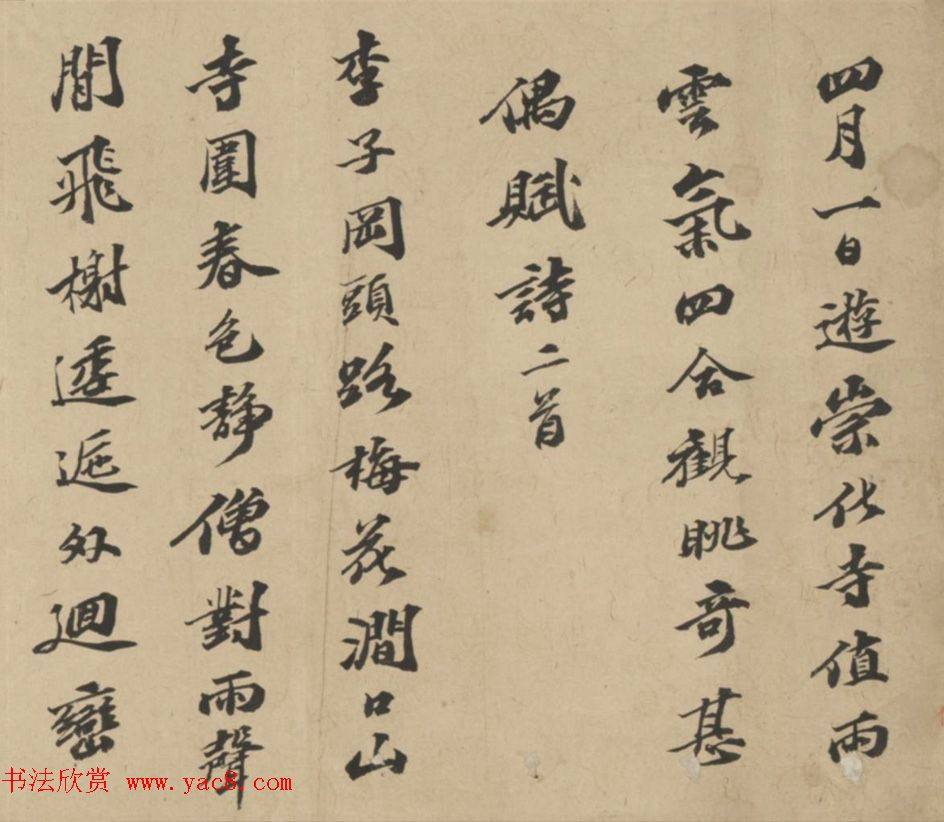 四月一日遊崇化寺值雨
雲氣四合觀眺奇甚
偶賦詩二首
李子岡頭路梅花澗口山
寺圍春色靜僧對雨聲
閒飛榭逶迤外迴巒
书法欣赏 www.yac8.com